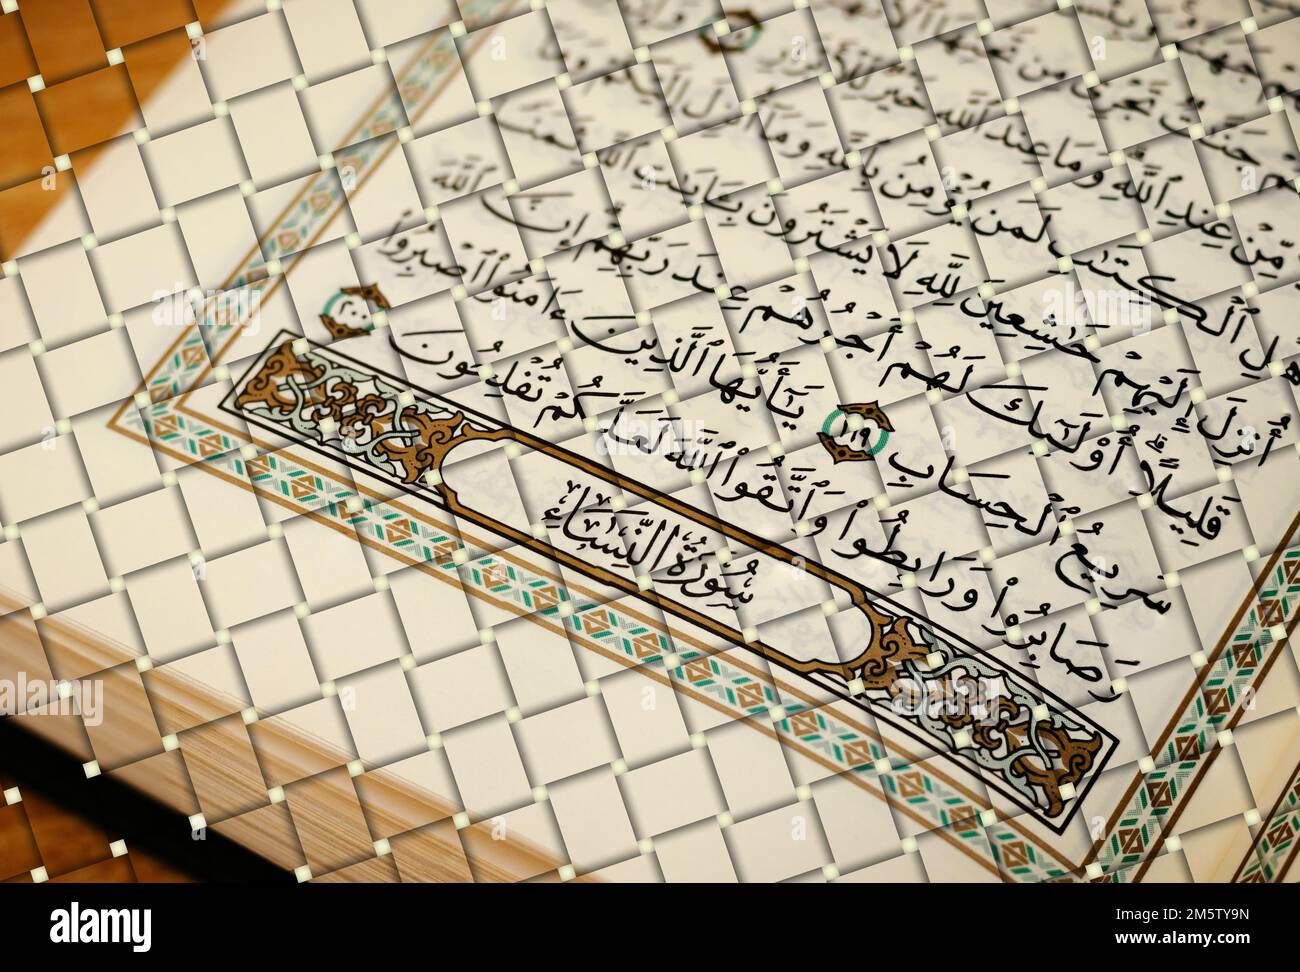 جَهَنَّمُ وَبِئْسَ
جَنَّٰتٌ تَجْرِى مِن تَحْتِهَا ٱلْأَنْهَٰرُ
مِّنْ عِندِ ٱللَّهِ وَمَا عِندَ ٱللَّهِ خَيْرٌ لِّلْأَبْرَارِ
أَهْلِ ٱلْكِتَٰبِ لَمَن يُؤْمِنُ بِٱللَّهِ وَمَآ أُنزِلَ إِلَيْكُمْ وَمَآ
أُنزِلَ إِلَيْهِمْ خَٰشِعِينَ لِلَّهِ لَا يَشْتَرُونَ بِـَٔايَٰتِ ٱللَّهِ ثَمَنًا
قَلِيلًا أُو۟لَٰٓئِكَ لَهُمْ أَجْرُهُمْ عِندَ رَبِّهِمْ إِنَّ ٱللَّهَ
سَرِيعُ ٱلْحِسَابِ ١٩٩ يَٰٓأَيُّهَا ٱلَّذِينَ ءَامَنُوا۟ ٱصْبِرُوا۟
وَصَابِرُوا۟ وَرَابِطُوا۟ وَٱتَّقُوا۟ ٱللَّهَ لَعَلَّكُمْ تُفْلِحُونَ ٢٠٠
سُورَةُ النِّسَاءِ
alamy
Image ID: 2M5TY9N
www.alamy.com